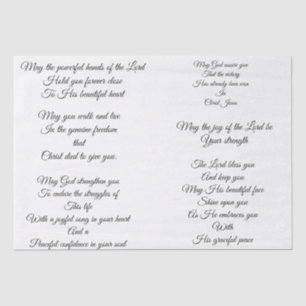 May the powerful hands of the Lord
Hold you forever close
To His beautiful heart
May you walk and live
In the genuine freedom
that
Christ died to give you.
May God strengthen you
To endure the struggles of
This life
With a joyful song in your heart
And a
Peaceful confidence in your soul
May God assure you
That the victory
Has already been won
In
Christ Jesus
May the joy of the Lord be
Your strength
The Lord bless you
And keep you
May His beautiful face
Shine upon you
As He embraces you
With
His graceful peace